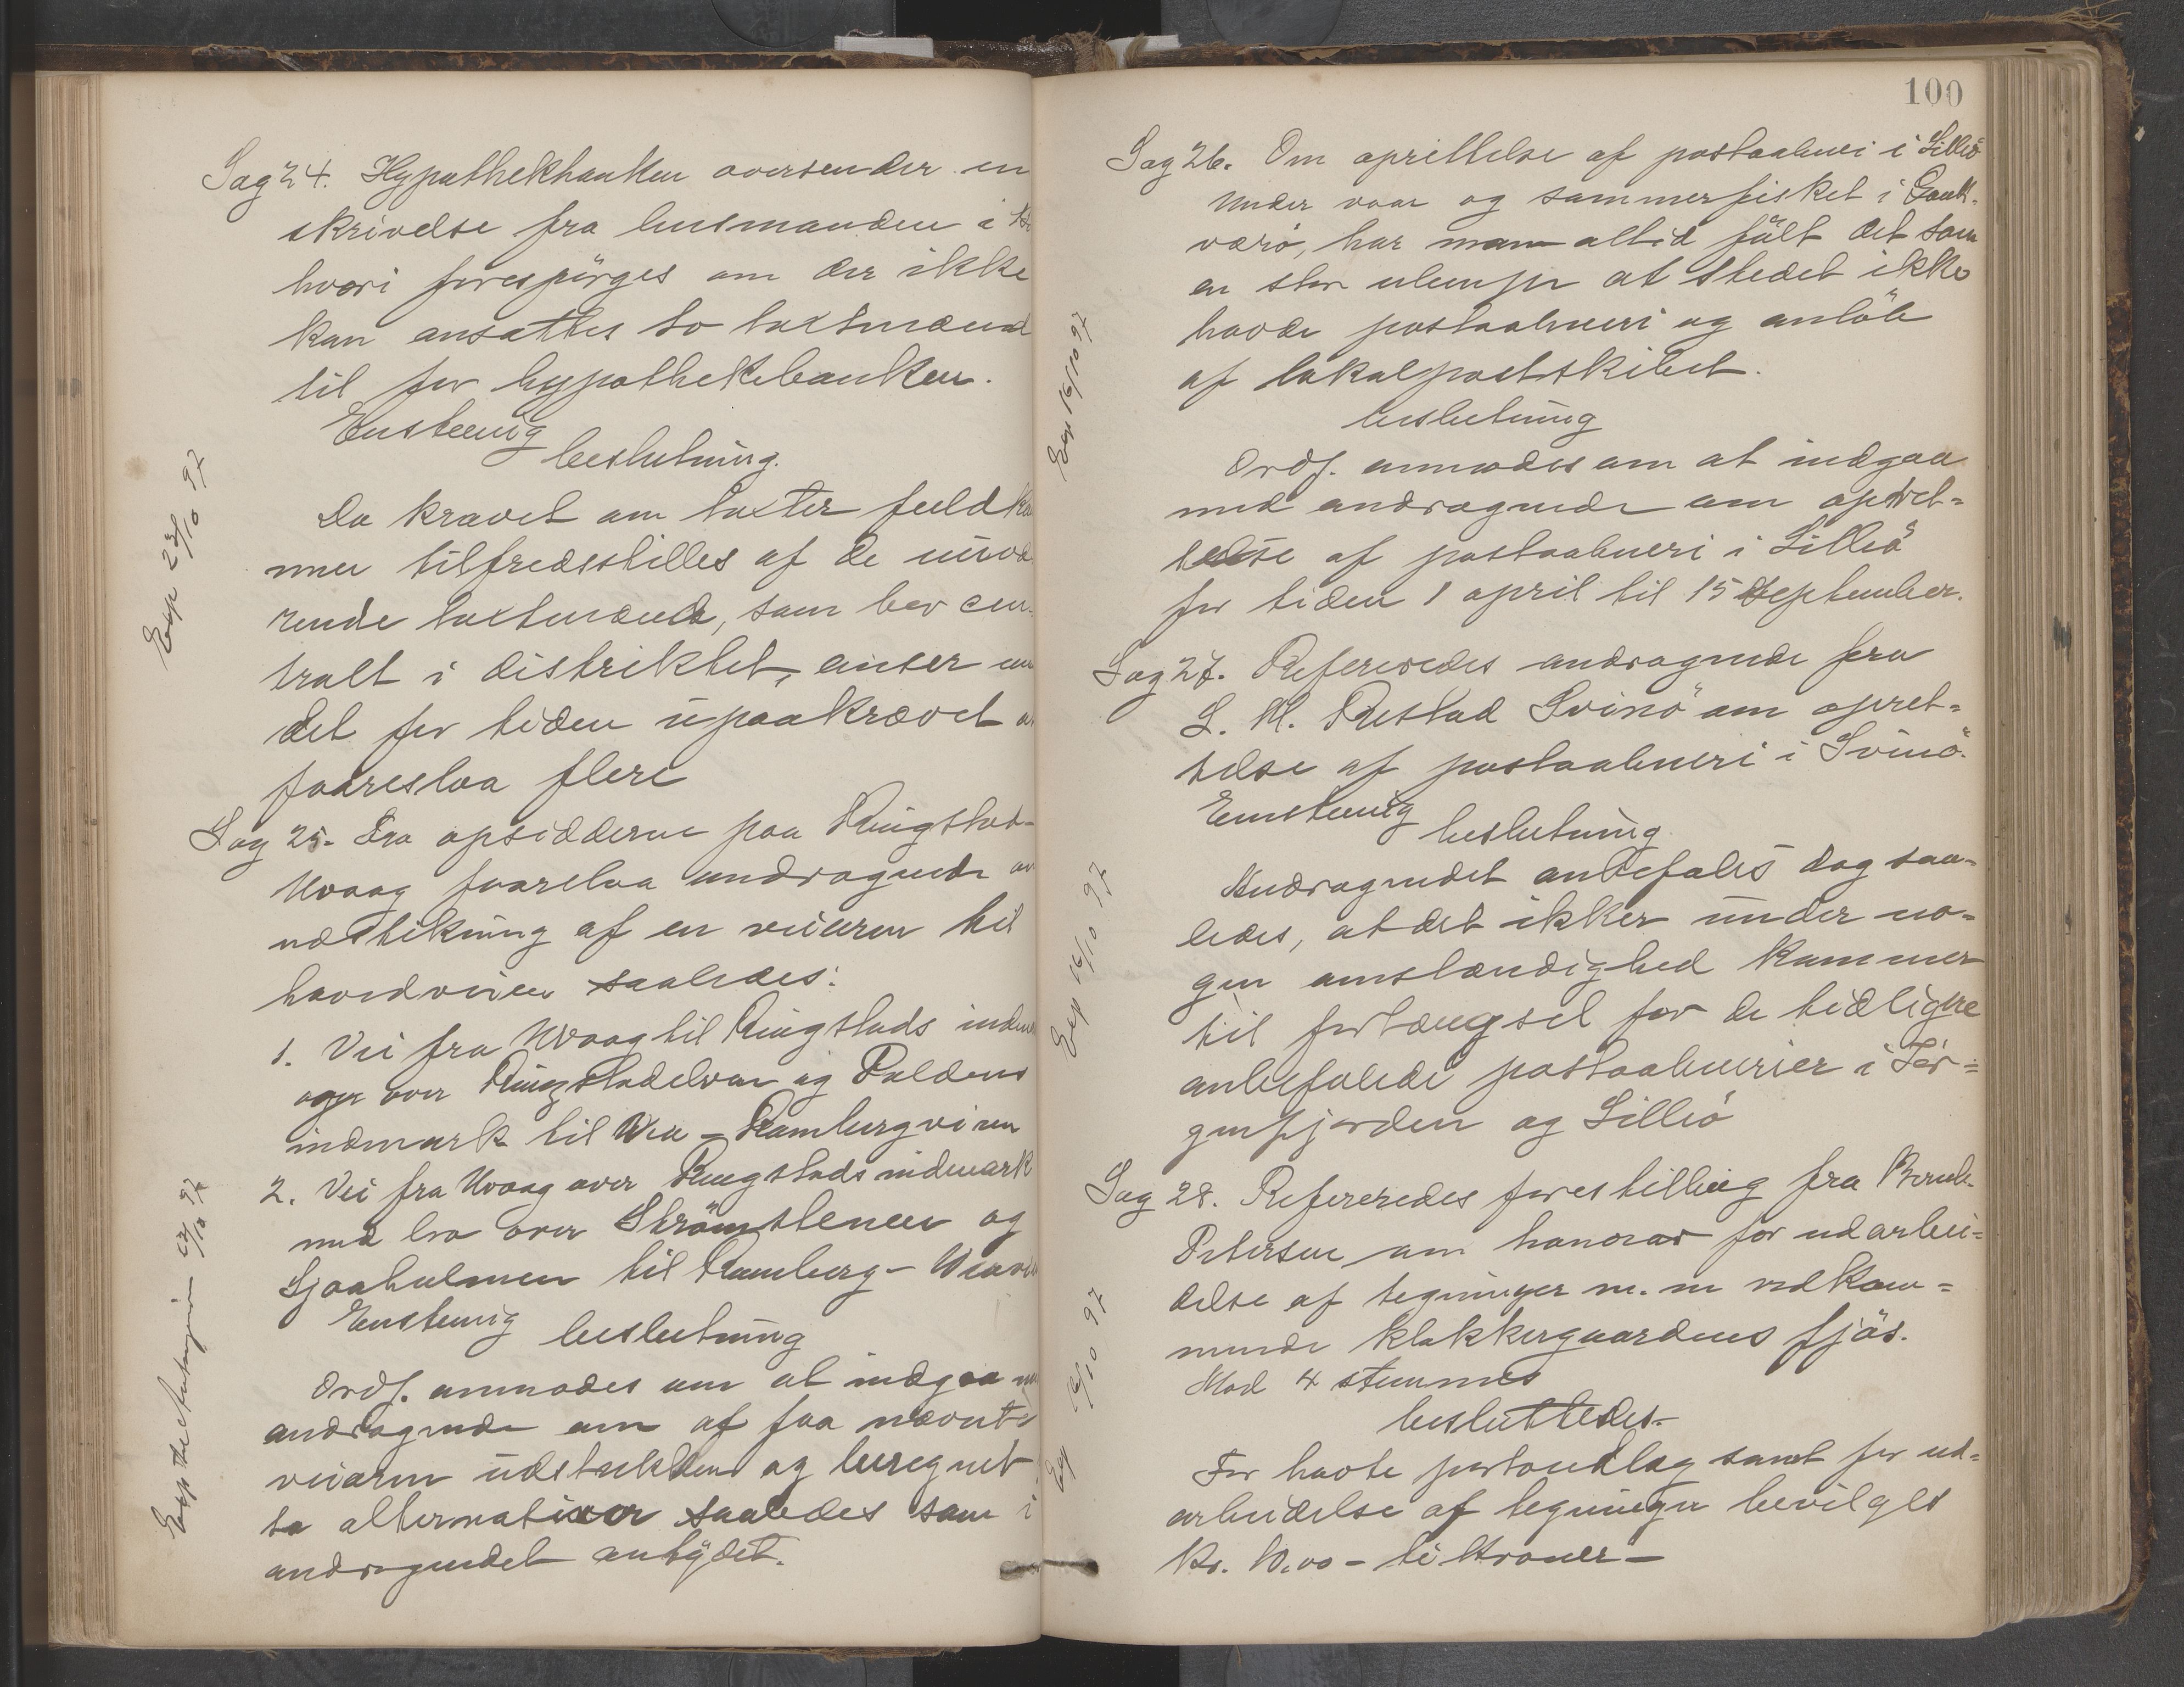 Sag 24. Hypothekbanken oversender en
skrivelse fra lensmanden i
hvori forespörges om der ikke
kan ansættes to taxtmænd
til for hypothekbanken.
Enstemig
beslutning.
Da kravet om taxter fuldkom
men tilfredsstilles af de nuvæ
rende taxtmænd, som bor cen-
tralt i distriktet, anser man
det for tiden upaakrævet at
foareslaa flere
Sag 25. Fra opsidderne paa Ringstad-
Uvaag foarelaa andragende om
udstikning af en veiarm til
hovedveien saaledes:
1. Vei fra Uvaag til Ringstads indmark
oger over Ringstadelven og Poldens
indmark til Vea - Ramberg veien
2. Vei fra Uvaag over Ringstads indmark
med bro over Strömstenen og
Sjaaholmen til Ramberg - Veaveien
Enstemig
beslutning
Ordf. anmodes om at indgaa med
andragende om af faa nævnte
veiarm udstukken og beregnet
to alternativer saaledes som i
andragendet antydet.
Exp 23/10 97
Exp 12/10 97
100
Sag 26. Om oprettelse af postaabneri i Lilleö
Under vaar og sommerfisket i Gauk-
værö, har man altid fült det som
en stor ulempe at stedet ikke
havde postaabneri og anlöb
af lokalpostskibet.
beslutning
Ordf. anmodes om at indgaa
med andragende om opret-
telse af postaabneri i Lilleö
for tiden 1 april til 15 September.
Sag 27. Refereredes andragende fra
L. M. Restad Svinö om opret-
telse af postaabneri i Svinö.
Enstemig
beslutning
Andragendet anbefales dog saa-
ledes, at det ikker under no-
gen omstændighed kommer
til fortængsel for de tidligere
anbefalede postaabnerier i Jör-
genfjorden og Lilleö
Sag 28. Refereredes forestilling fra Bernh.
Petersen om honorar for udarbei-
delse af tegninger m. m vedkom-
mende klokkergaardens fjös.
Mod 4 stemmer
besluttedes-
For havte portoudlag samt for ud-
arbeidelse af tegninger bevilges
Kr. 10.00 - ti kroner -
Exp 16/10 97
Exp 16/10 97
Exp 6/10 97